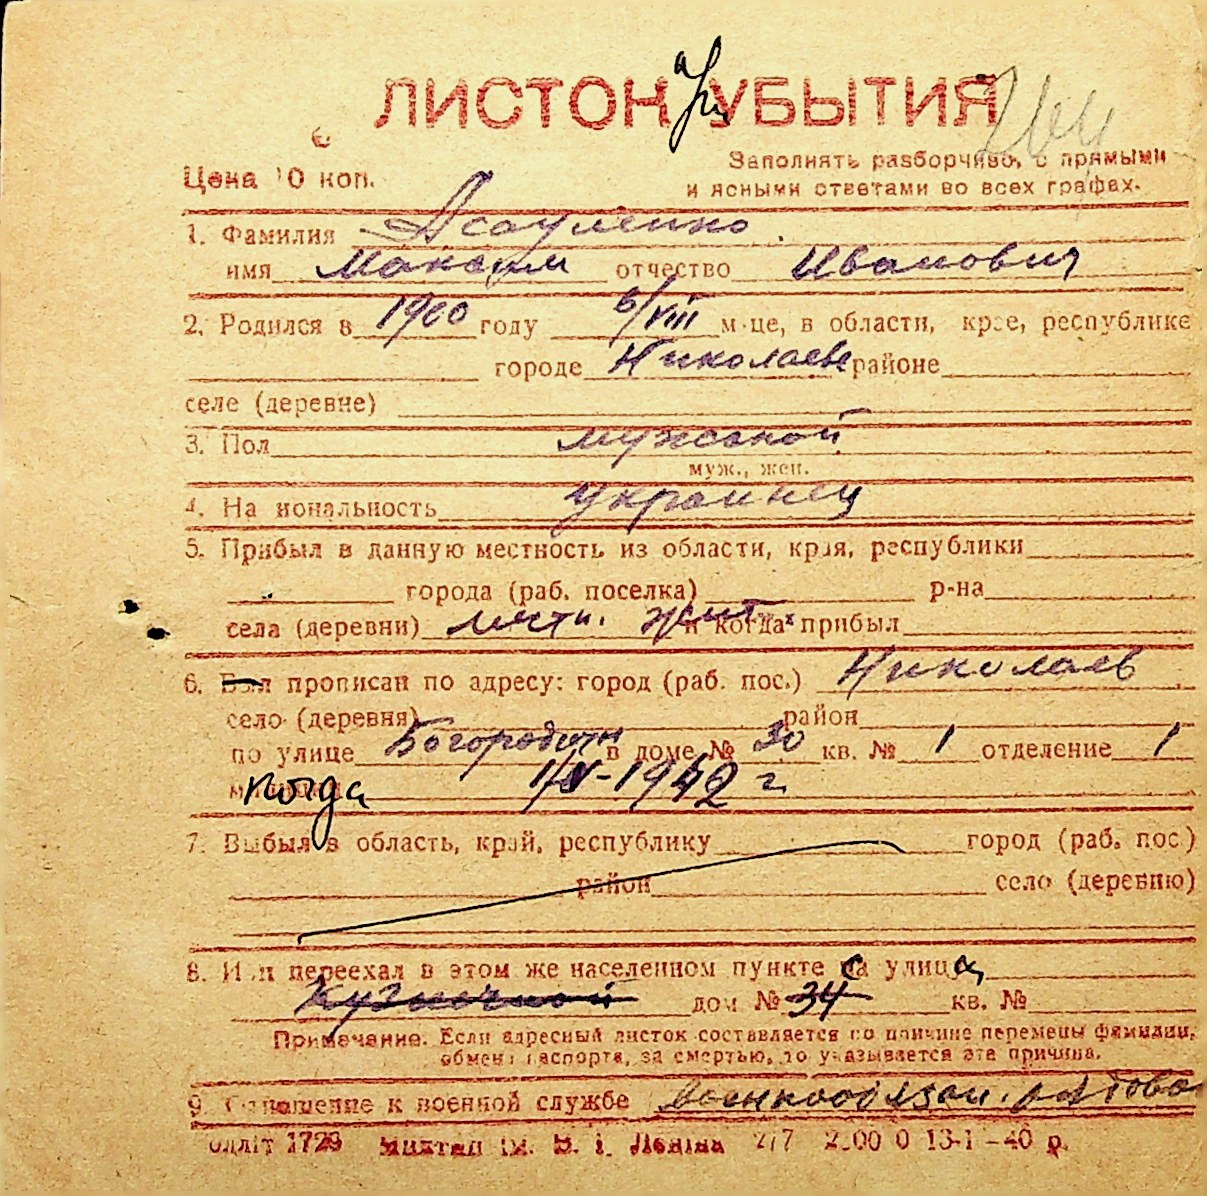 ЛИСТОК УБЫТИЯ
Цена 10 коп.
Заполнять разборчиво, с прямыми
и ясными ответами во всех графах.
1. Фамилия Асауленко
имя Максим отчество Иванович
2. Родился в 1900 году 6/VIII м-це, в области, крае, республике
городе Николаеве районе
селе (деревне)
3. Пол мужской
муж., жен.
4. Национальность украинец
5. Прибыл в данную местность из области, края, республики
города (раб. поселка) р-на
села (деревни) местн. жит. и когда прибыл
6. Был прописан по адресу: город (раб. пос.) Николаев
село (деревня) район
по улице в доме № 30 кв. № 1 отделение 1
когда 1942 г.
7. Выбыл в область, край, республику город (раб. пос.)
район село (деревню)
8. Или переехал в этом же населенном пункте с улица
Кузнечной дом № 34 кв. №
Примечание. Если адресный листок составляется по причине перемены фамилии,
обмена паспорта, за смертью, то указывается эта причина.
9. Отношение к военной службе военнообязан. рядово
Одліт 1729 ім. В. І. Леніна 277 13-1-40 р.